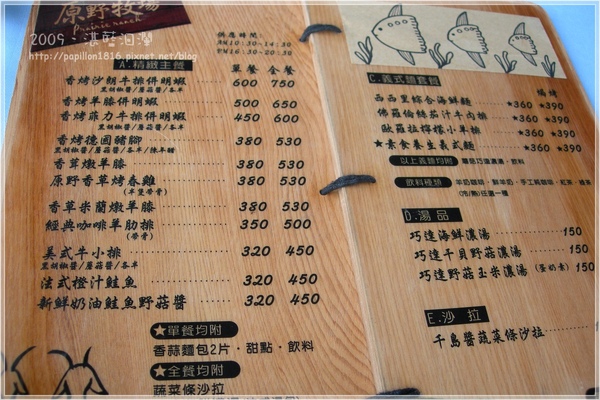 原野牧場
Prairie ranch
2009、湛藍洄瀾
http://papillon1816.pixnet.net/blog
供應時間
AM10:30-14:30
PM16:30-20:30
A.精緻主餐
單餐 全餐
香烤沙朗牛排併明蝦 600 750
黑胡椒醬/蘑菇醬/各半
香烤羊膝併明蝦 500 650
香烤菲力牛排併明蝦 450 600
黑胡椒醬/蘑菇醬/各半
香烤德國豬腳 380 530
黑胡椒醬/蘑菇醬/各半/陳年醋
香茸燉羊膝 380 530
原野香草烤春雞 380 530
(半隻帶骨)
香草米蘭燉羊膝 380 530
經典咖啡羊肋排 350 500
(帶骨)
美式牛小排 320 450
黑胡椒醬/蘑菇醬/各半
法式橙汁鮭魚 320 450
新鮮奶油鮭魚野菇醬 320 450
★單餐均附
香蒜麵包2片·甜點·飲料
★全餐均附
蔬菜條沙拉
C.義式麵套餐
焗烤
西西里綜合海鮮麵 ★360 ★390
佛羅倫絲茄汁牛肉排 ★360 ★390
歐羅拉檸檬小羊排 ★360 ★390
★素食養生義式麵 ★360 ★390
以上義麵均附 單品巧達濃湯、飲料
飲料種類 羊奶咖啡、鮮羊奶、手工純咖啡、紅茶、綠茶
(冷/熱)任選一種
D.湯品
巧達海鮮濃湯 150
巧達干貝野菇濃湯 150
巧達野菇玉米濃湯 (蛋奶素) 150
E.沙拉
千島醬蔬菜條沙拉 150